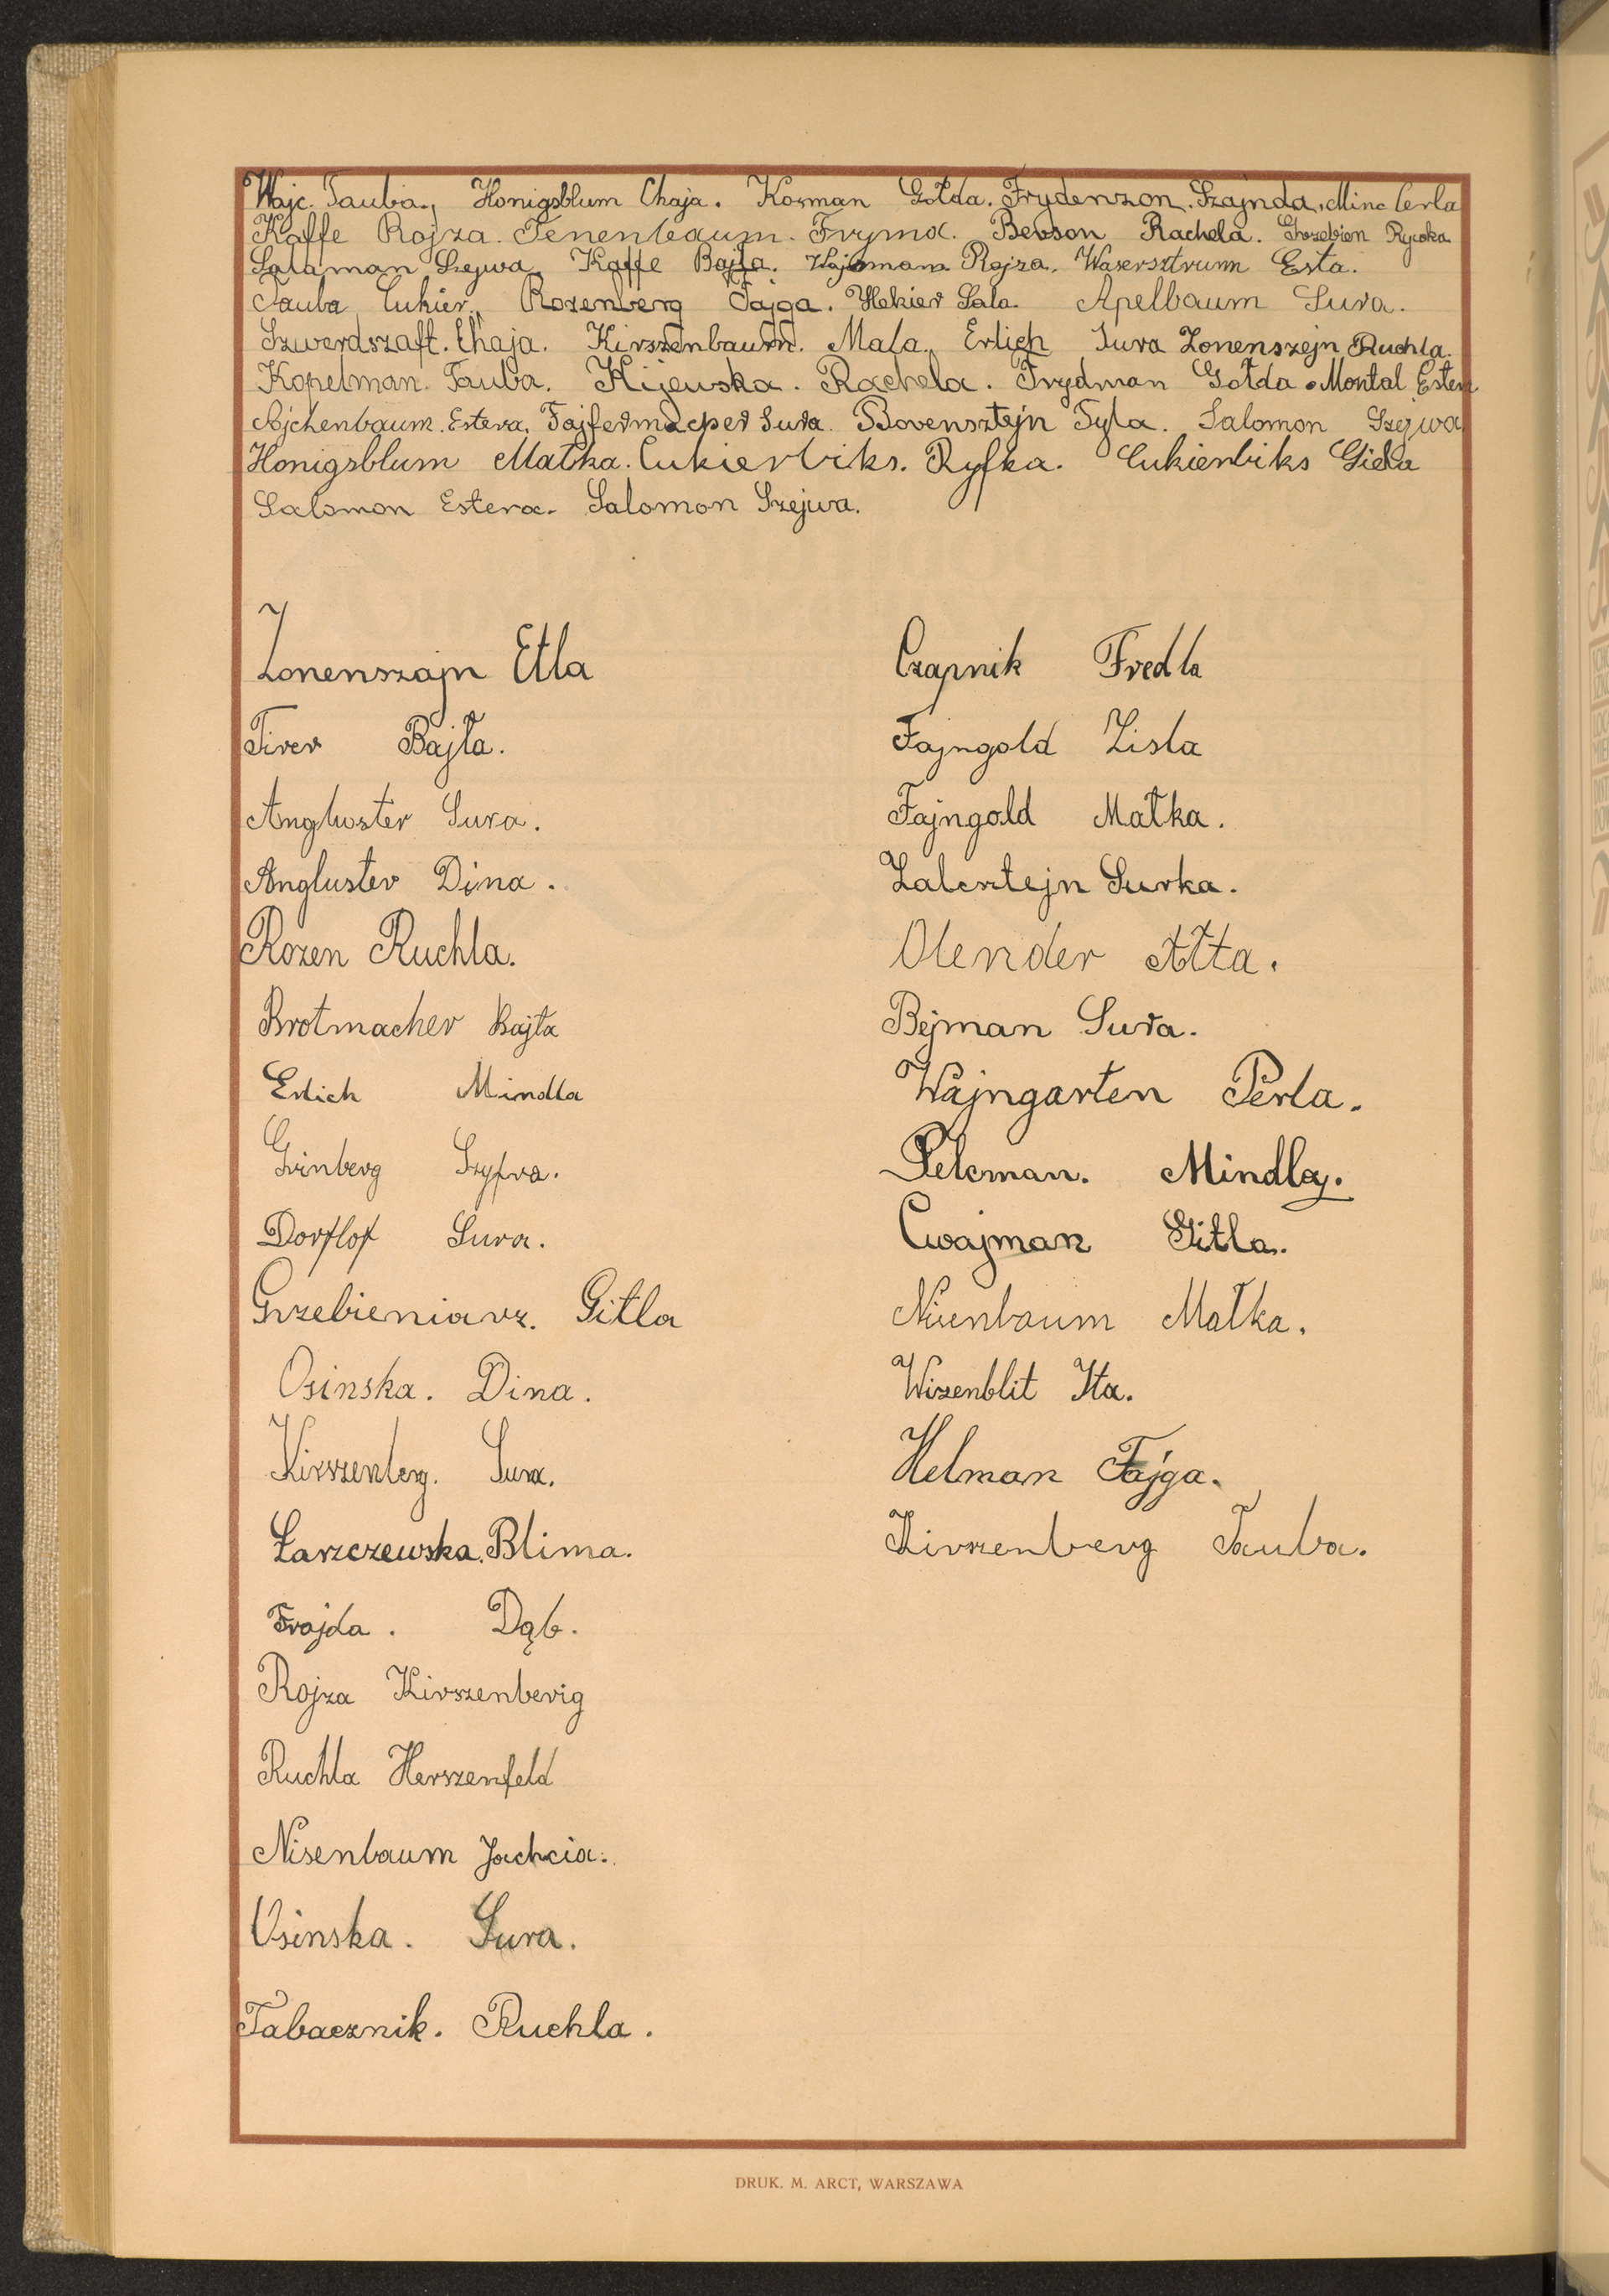 Wajc. Tauba., Honigsblum Chaja. Korman Gołda. Frydenzon. Szajnda. Minc Cerla
Kaffe Rojza. Tenenbaum. Fryma. Berson Rachela. Grzebien Rywka
Salaman Szejwa. Kaffe Bajla. Wajsmann Rojza. Wasersztrum Esta.
Tauba Cukier. Rozenberg Fajga. Hekier Sala. Apelbaum Sura.
Szwerdszaft. Chaja. Kirszenbaum. Mala. Erlich Sura Zonenszejn Ruchla.
Kopelman. Tauba. Kijewska. Rachela. Frydman Gołda. Montal Ester
Ajchenbaum. Estera. Fajfermacher Sura. Borensztejn Tyla. Salomon Szejwa
Honigsblum Małka. Cukierbiks. Ryfka. Cukierbiks Giela
Salomon Estera. Salomon Szejwa.
Zonenszajn Etla
Tirer Bajła.
Angluster Sura.
Angluster Dina.
Rozen Ruchla.
Brotmacher Bajła
Erlich Mindla
Grinberg Szyfra.
Dorflof Sura.
Grzebieniarz. Gitla
Osinska. Dina.
Kirszenberg. Sura.
Łarzczewska. Blima.
Frajda. Dąb.
Rojza Kirszenberig
Ruchla Herszenfeld
Nisenbaum Jachcia.
Osinska. Sura.
Tabacznik. Ruchla.
Czapnik Fredla
Fajngold Zisla
Fajngold Małka.
Zalcsztejn Surka.
Olender Ałta.
Bejman Sura.
Wajngarten Perla.
Pelcman. Mindla.
Cwajman Gitla.
Nisenbaum Małka.
Wizenblit Ita.
Helman Fajga.
Kirszenberg Tauba.
DRUK. M. ARCT, WARSZAWA